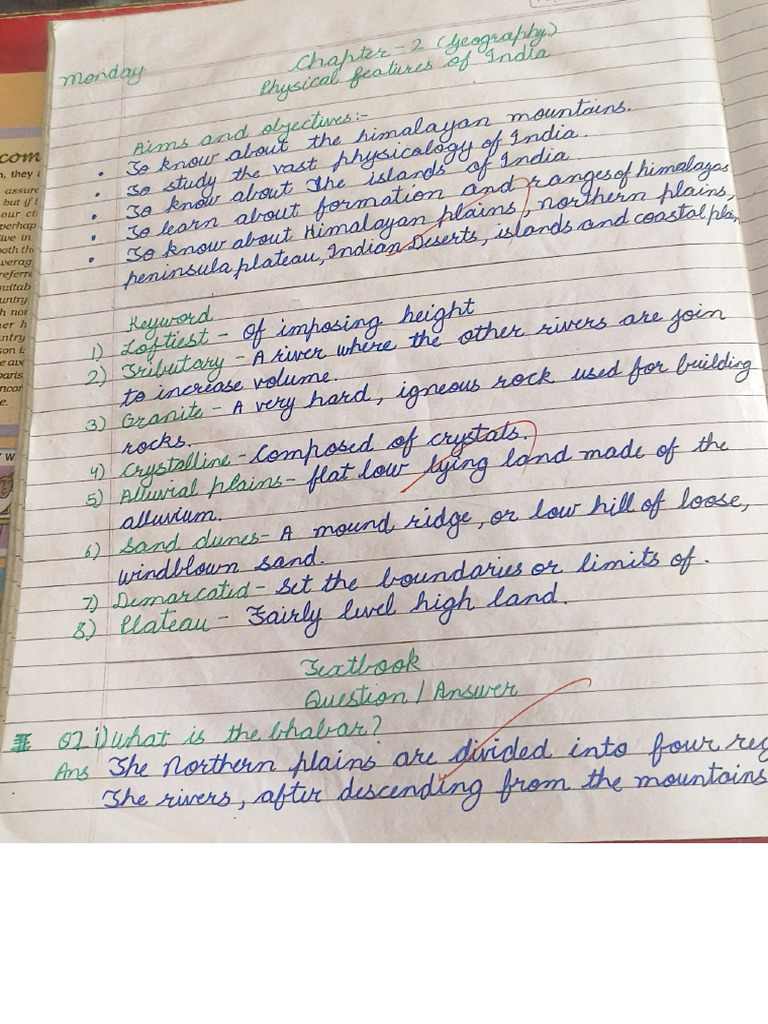 Monday
Chapter - 2 (Geography)
Physical features of India
Aims and objectives:-
• To know about the himalayan mountains.
• To study the vast physicalogy of India.
• To know about the islands of India
• To learn about formation and ranges of himalayas
• To know about Himalayan plains, northern plains,
peninsula plateau, Indian Deserts, islands and coastal plain
Keyword
1) Loftiest - Of imposing height
2) Tributary - A river where the other rivers are join
to increase volume.
3) Granite - A very hard, igneous rock used for building
rocks.
4) Crystalline - Composed of crystals.
5) Alluvial plains - flat low lying land made of the
alluvium.
6) Sand dunes - A mound ridge, or low hill of loose,
windblown sand.
7) Demarcated - Set the boundaries or limits of.
8) Plateau - Fairly level high land.
Textbook
Question / Answer
Q7 i) What is the bhabar?
Ans The Northern plains are divided into four reg
The rivers, after descending from the mountains